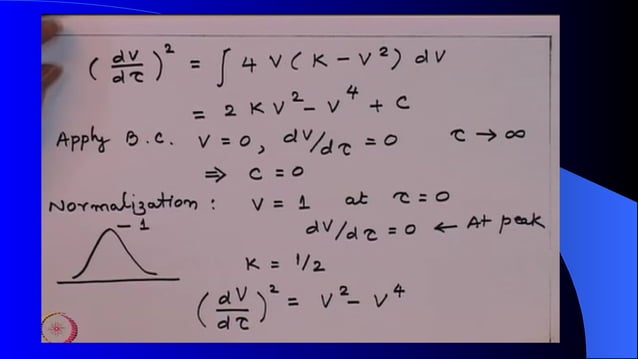 (dV/dτ)² = ∫ 4 V ( K − V² ) dV
= 2 K V² − V⁴ + C
Apply B.C. V = 0, dV/dτ = 0 τ → ∞
⇒ C = 0
Normalization : V = 1 at τ = 0
1
dV/dτ = 0 ← At peak
K = 1/2
(dV/dτ)² = V² − V⁴